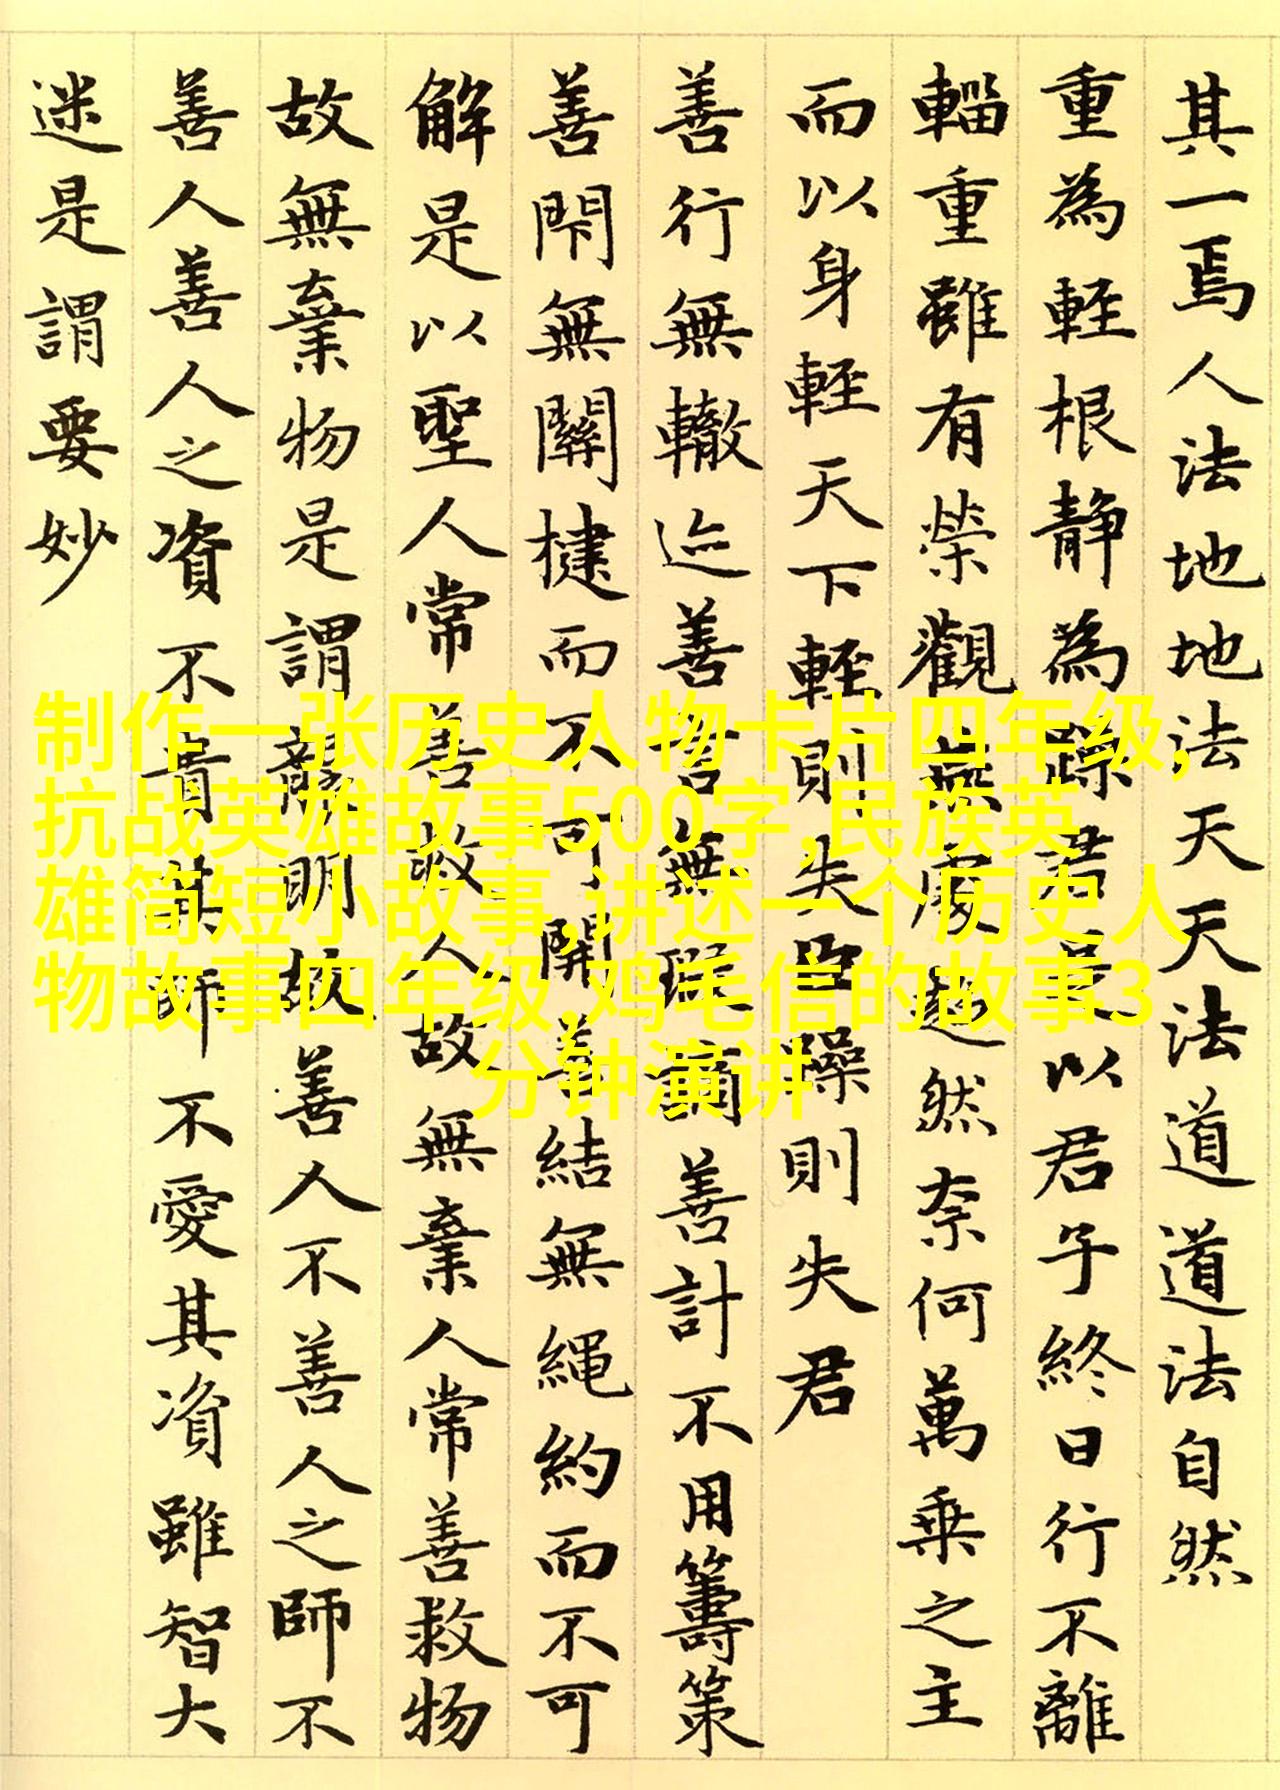 其一焉人法地地法天天法道道法自然
重為輕根靜為躁君是以君子終日行不離
輜重雖有榮觀燕處超然奈何萬乘之主
而以身輕天下輕則失臣躁則失君
善行無轍迹善言無瑕謫善計不用籌策
善閇無關楗而不可開善結無繩約而不可
解是以聖人常善救人故無棄人常善救物
故無棄物是謂襲明故善人不善人之師不
善人善人之資不貴其師不愛其資雖智大
迷是謂要妙
制作一张历史人物卡片四年级,
抗战英雄故事500字,民族英
雄简短小故事,讲述一个历史人
物故事四年级,鸡毛信的故事3
分钟演讲